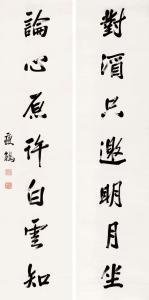 對酒只邀明月坐
論心原許白雲知